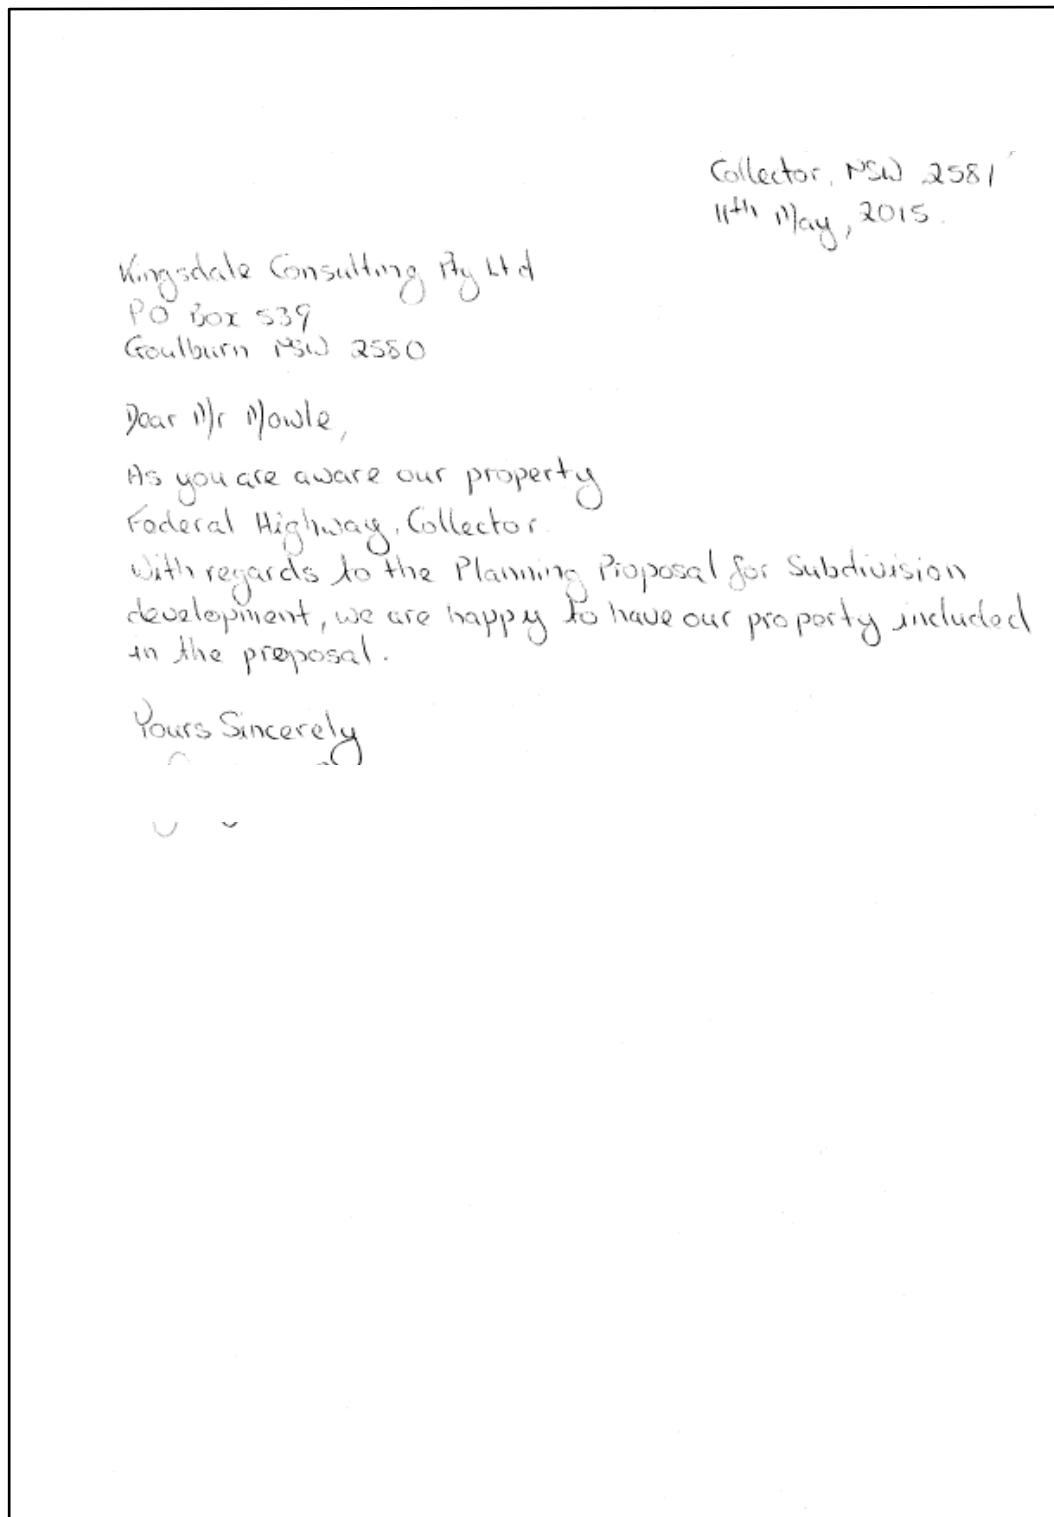 Collector, NSW 2581
11th May, 2015.
Kingsdale Consulting Pty Ltd
PO Box 539
Goulburn NSW 2580
Dear Mr Mowle,
As you are aware our property
Federal Highway, Collector.
With regards to the Planning Proposal for Subdivision
development, we are happy to have our property included
in the proposal.
Yours Sincerely